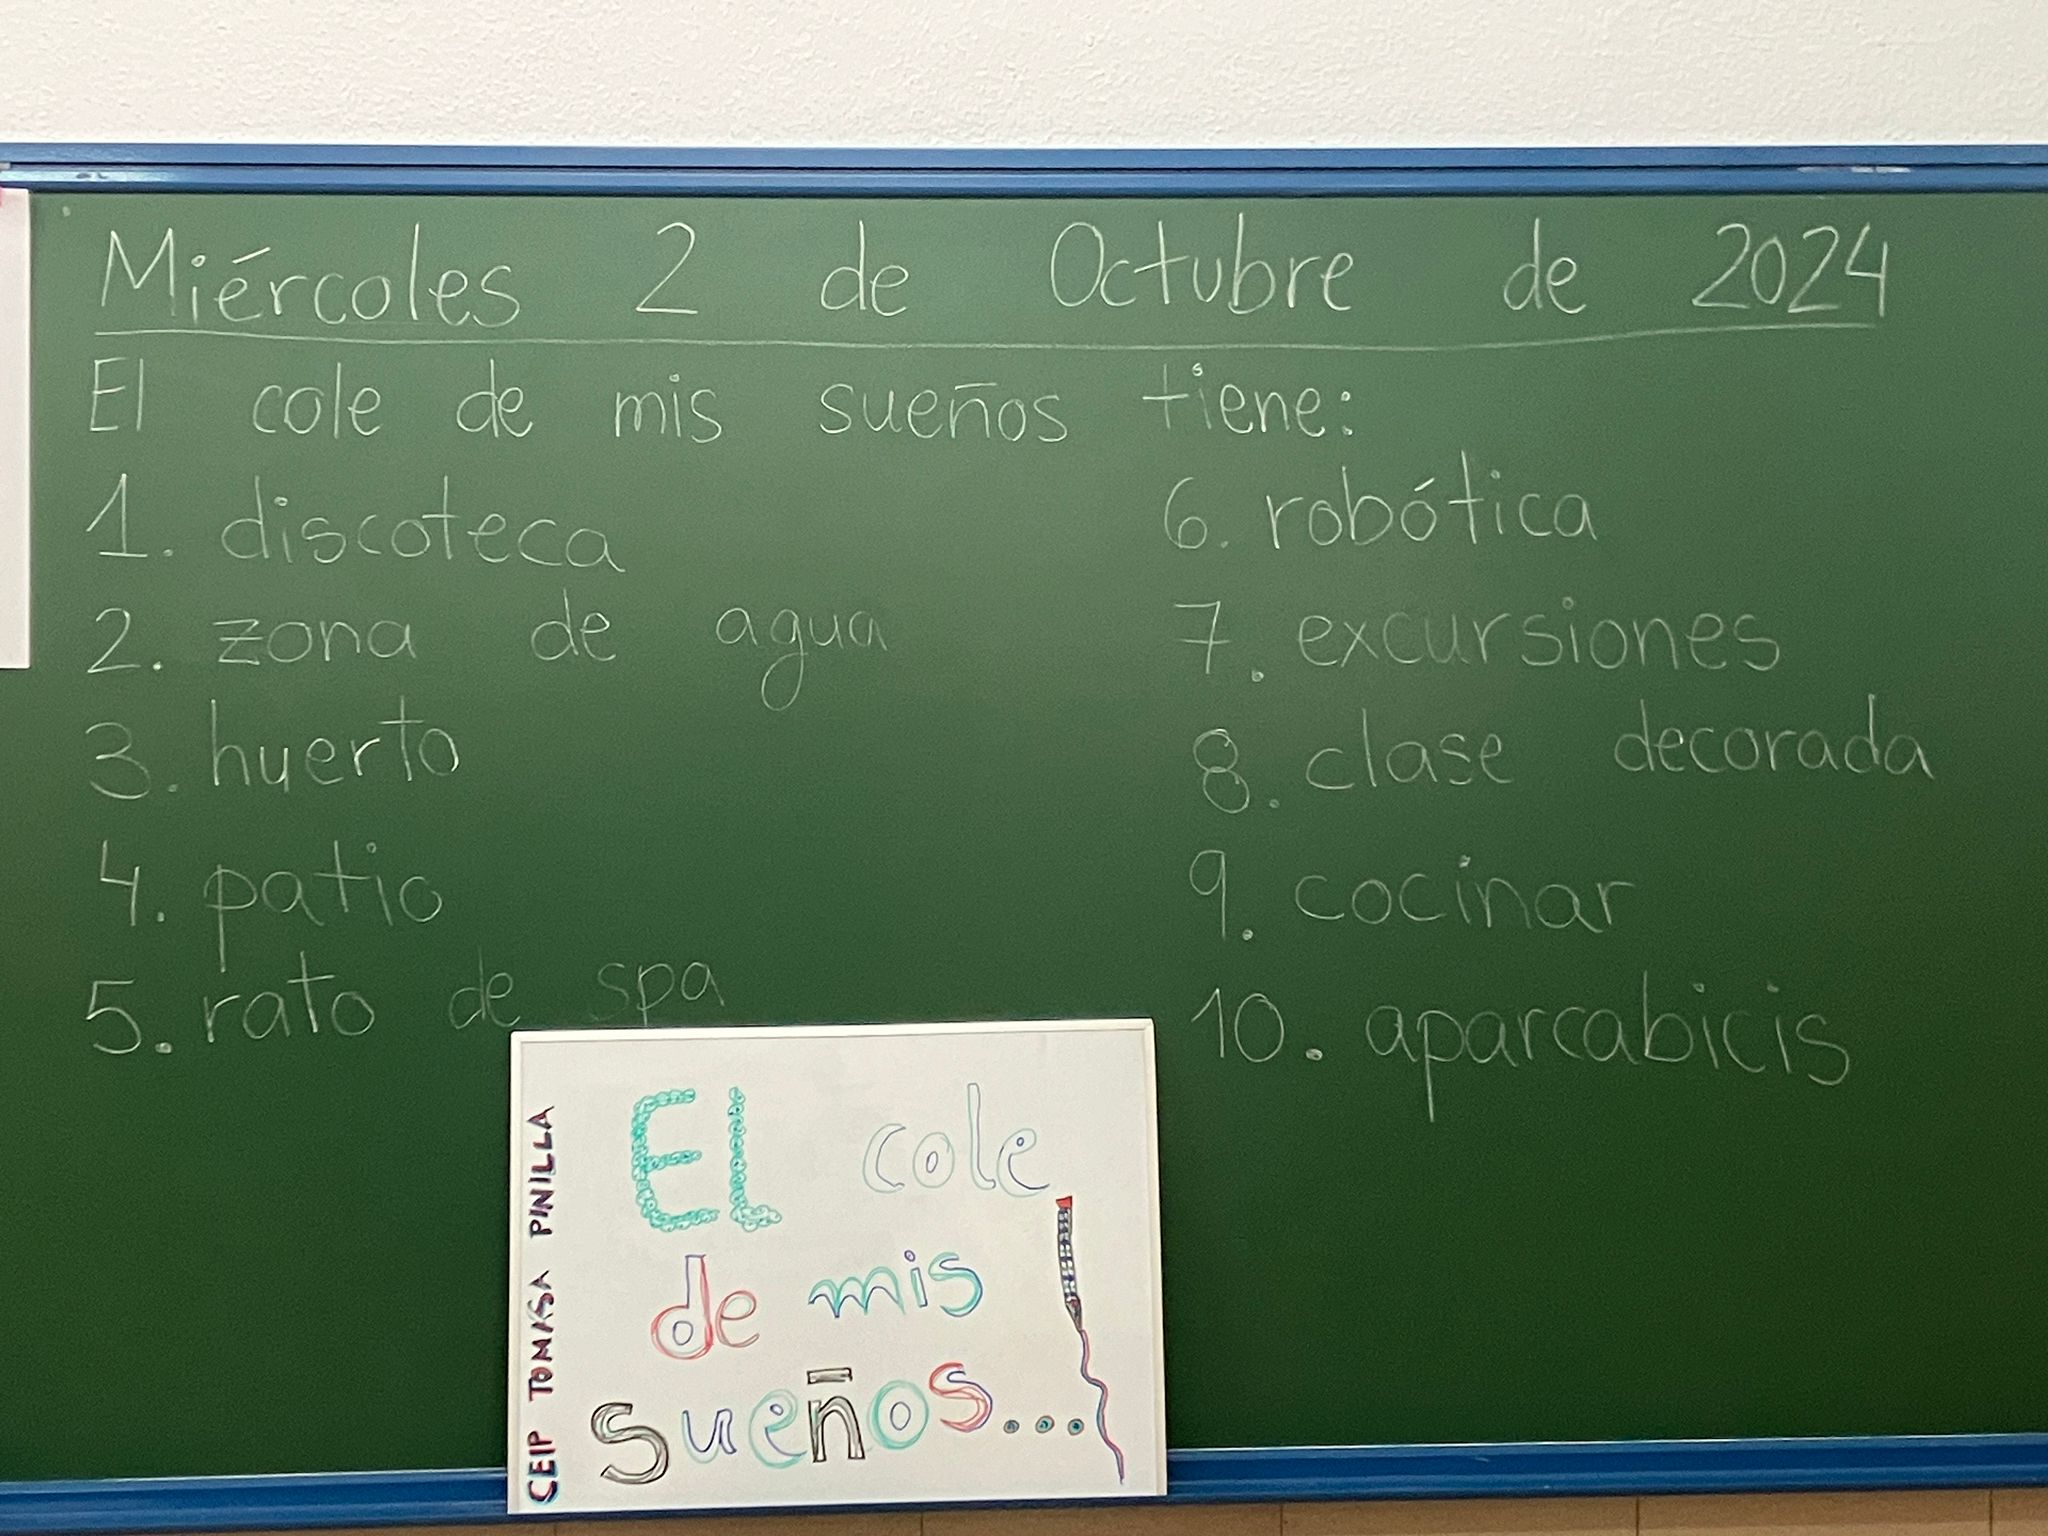 Miércoles 2 de Octubre de 2024
El cole de mis sueños tiene:
1. discoteca
2. zona de agua
3. huerto
4. patio
5. rato de spa
6. robótica
7. excursiones
8. clase decorada
9. cocinar
10. aparcabicis
CEIP TOMASA PINILLA
El cole
de mis
sueños...